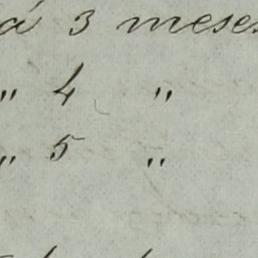 á 3 meses
" 4 "
" 5 "